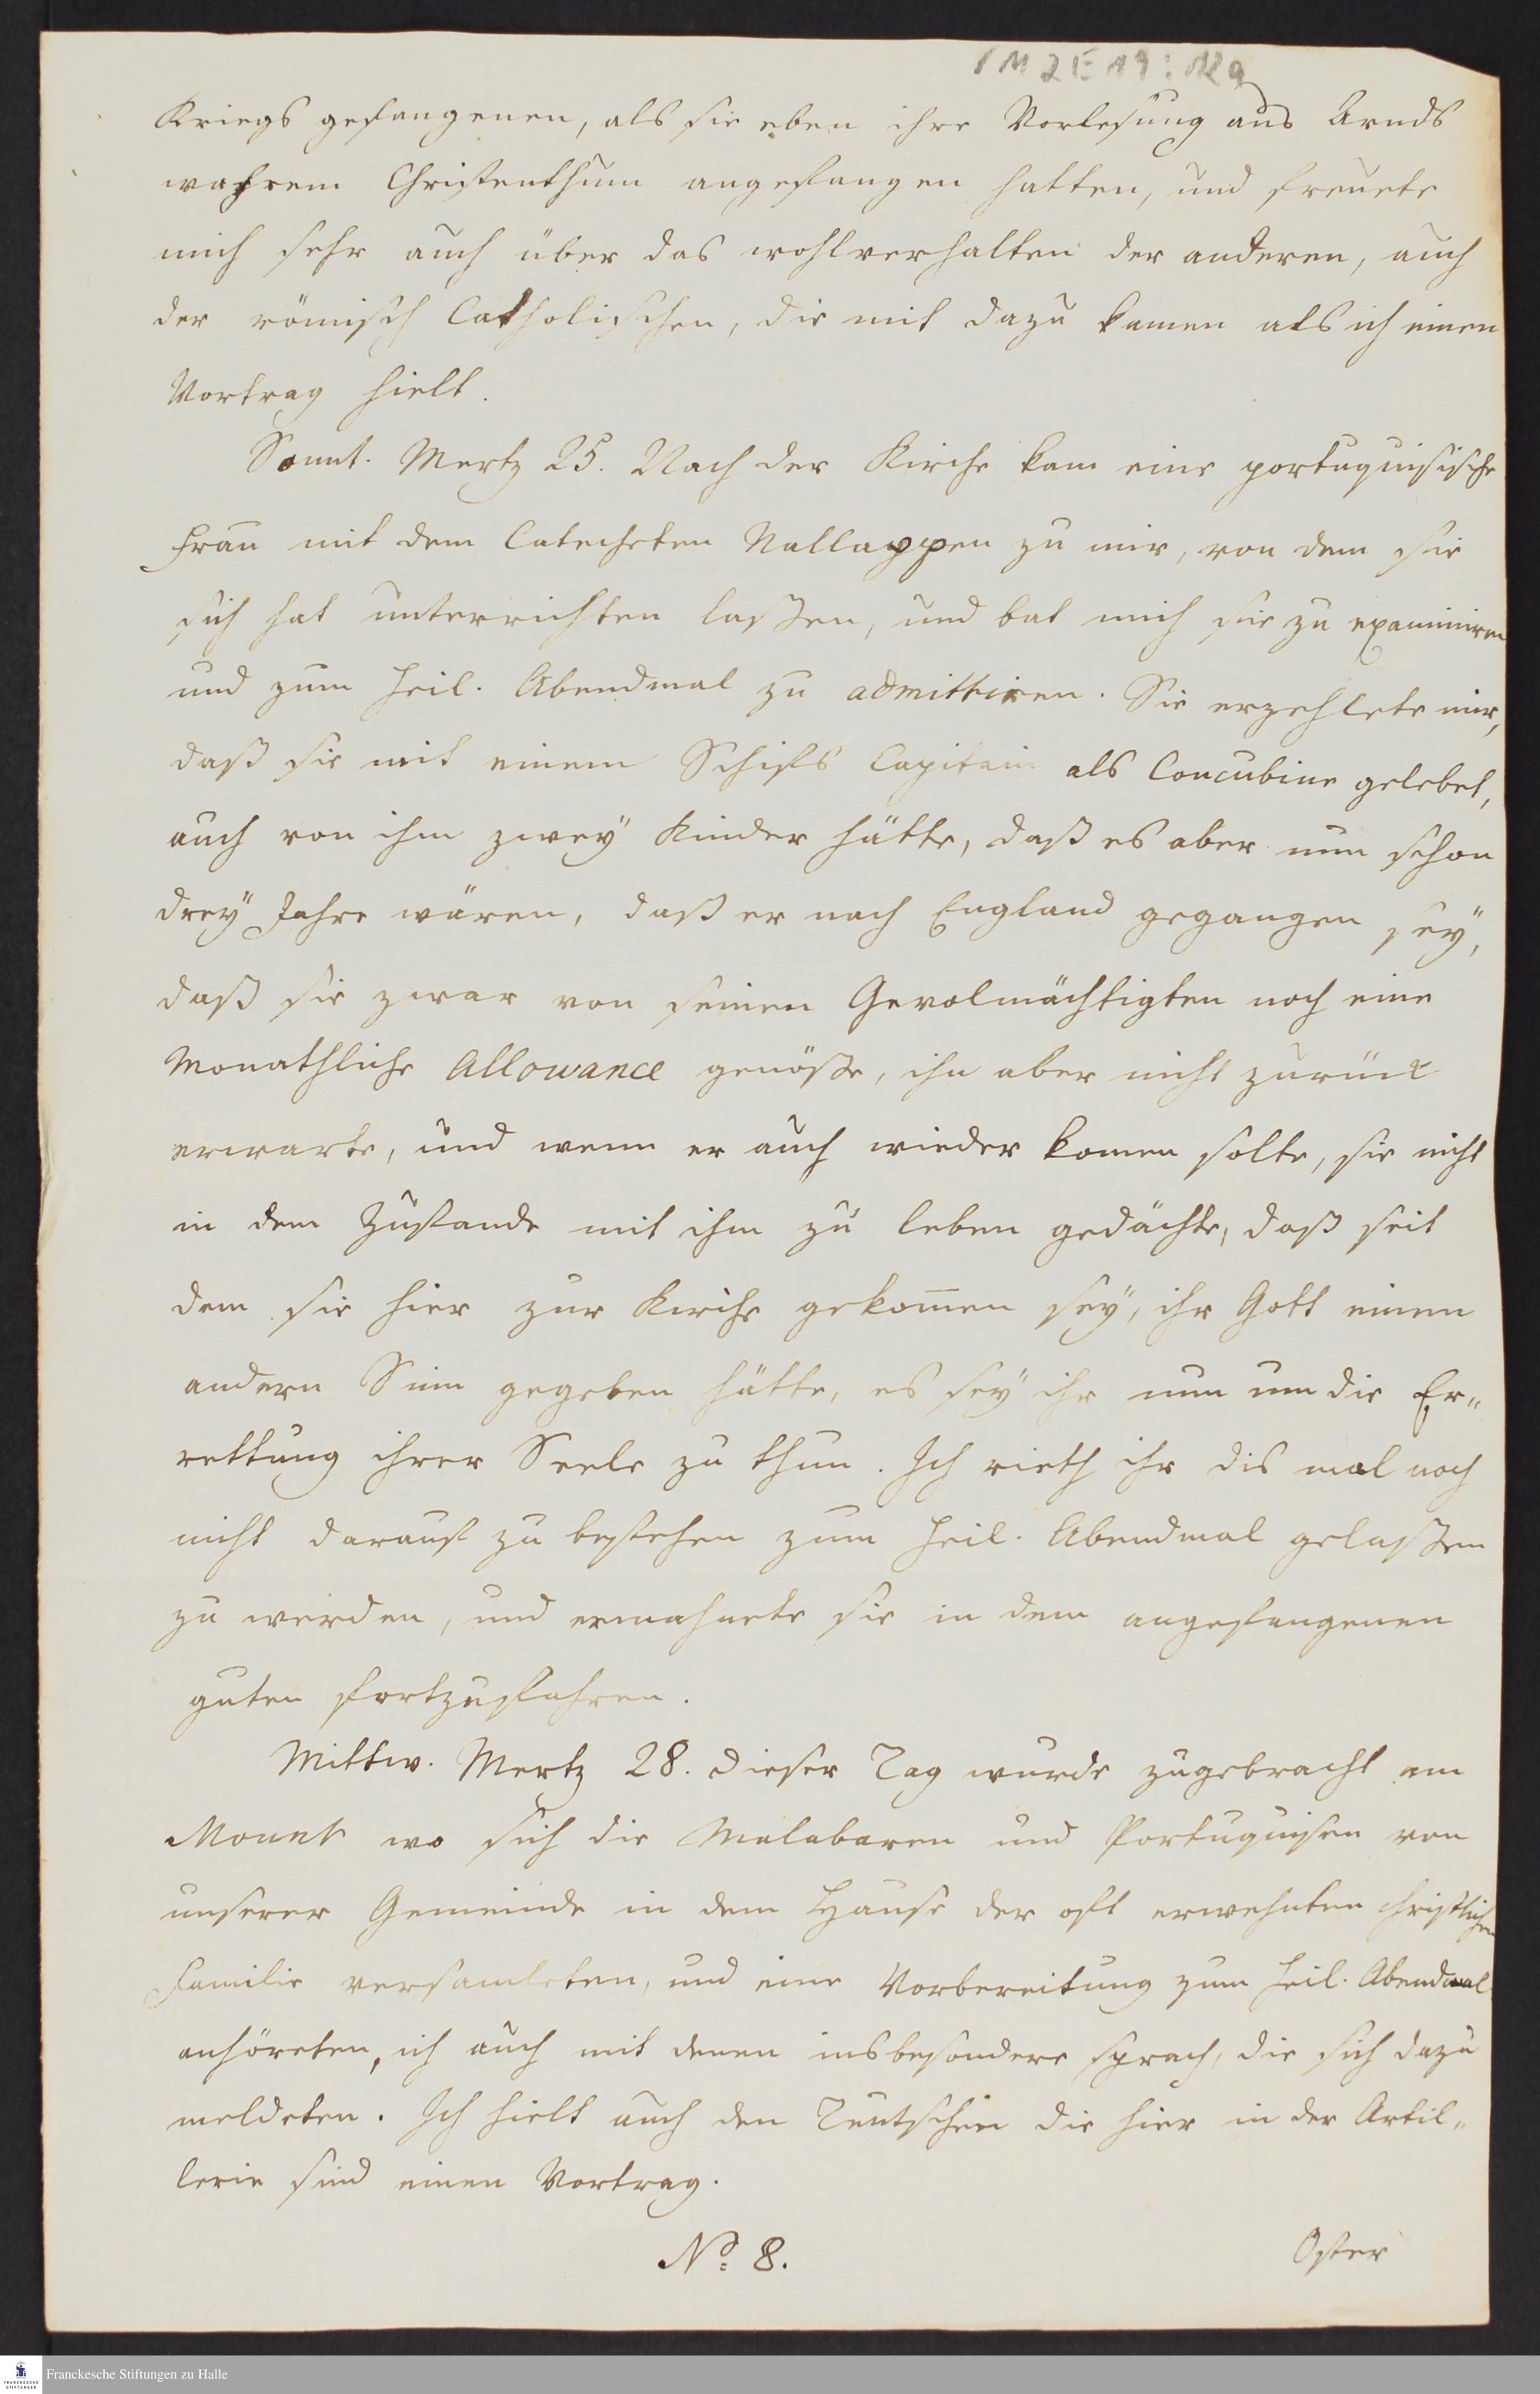 1M 2E 19 : 12a
Kriegs gefangenen, als sie eben ihre Vorlesung aus Arnds
wahrem Christenthum angefangen hatten, und freuete
mich sehr auch über das wohlverhalten der anderen, auch
der römisch Catholischen, die mit dazu kamen als ich einen
Vortrag hielt.
Sonnt. Mertz 25. Nach der Kirche kam eine portuguisische
Frau mit dem Catecheten Nallappen zu mir, von dem sie
sich hat unterrichten laßen, und bat mich sie zu examiniren
und zum heil. Abendmal zu admittiren. Sie erzehlete mir,
daß sie mit einem Schifs Capitain als Concubine gelebet,
auch von ihm zwey Kinder hätte, daß es aber nun schon
drey Jahre wären, daß er nach England gegangen sey,
daß sie zwar von seinen Gevolmächtigten noch eine
Monathliche Allowance genöße, ihn aber nicht zurück
erwarte, und wenn er auch wieder komen solte, sie nicht
in dem Zustande mit ihm zu leben gedächte, daß seit
dem sie hier zur Kirche gekom̅en sey, ihr Gott einen
andern Sinn gegeben hätte, es sey ihr nun um die Er„
rettung ihrer Seele zu thun. Ich rieth ihr dis mal noch
nicht darauf zu bestehen zum heil. Abendmal gelaßen
zu werden, und ermahnete sie in dem angefangenen
guten fortzufahren.
Mittw. Mertz 28. Dieser Tag wurde zugebracht am
Mount wo sich die Malabaren und Portuguisen von
unserer Gemeinde in dem Hause der oft erwehnten christlichen
Familie versamleten, und eine Vorbereitung zum heil. Abendmal
anhöreten, ich auch mit denen insbesondere sprach, die sich dazu
meldeten. Ich hielt auch den Teutschen die hier in der Artil„
lerie sind einen Vortrag.
No. 8.
Oster
Franckesche Stiftungen zu Halle
FRANCKESCHE
STIFTUNGEN